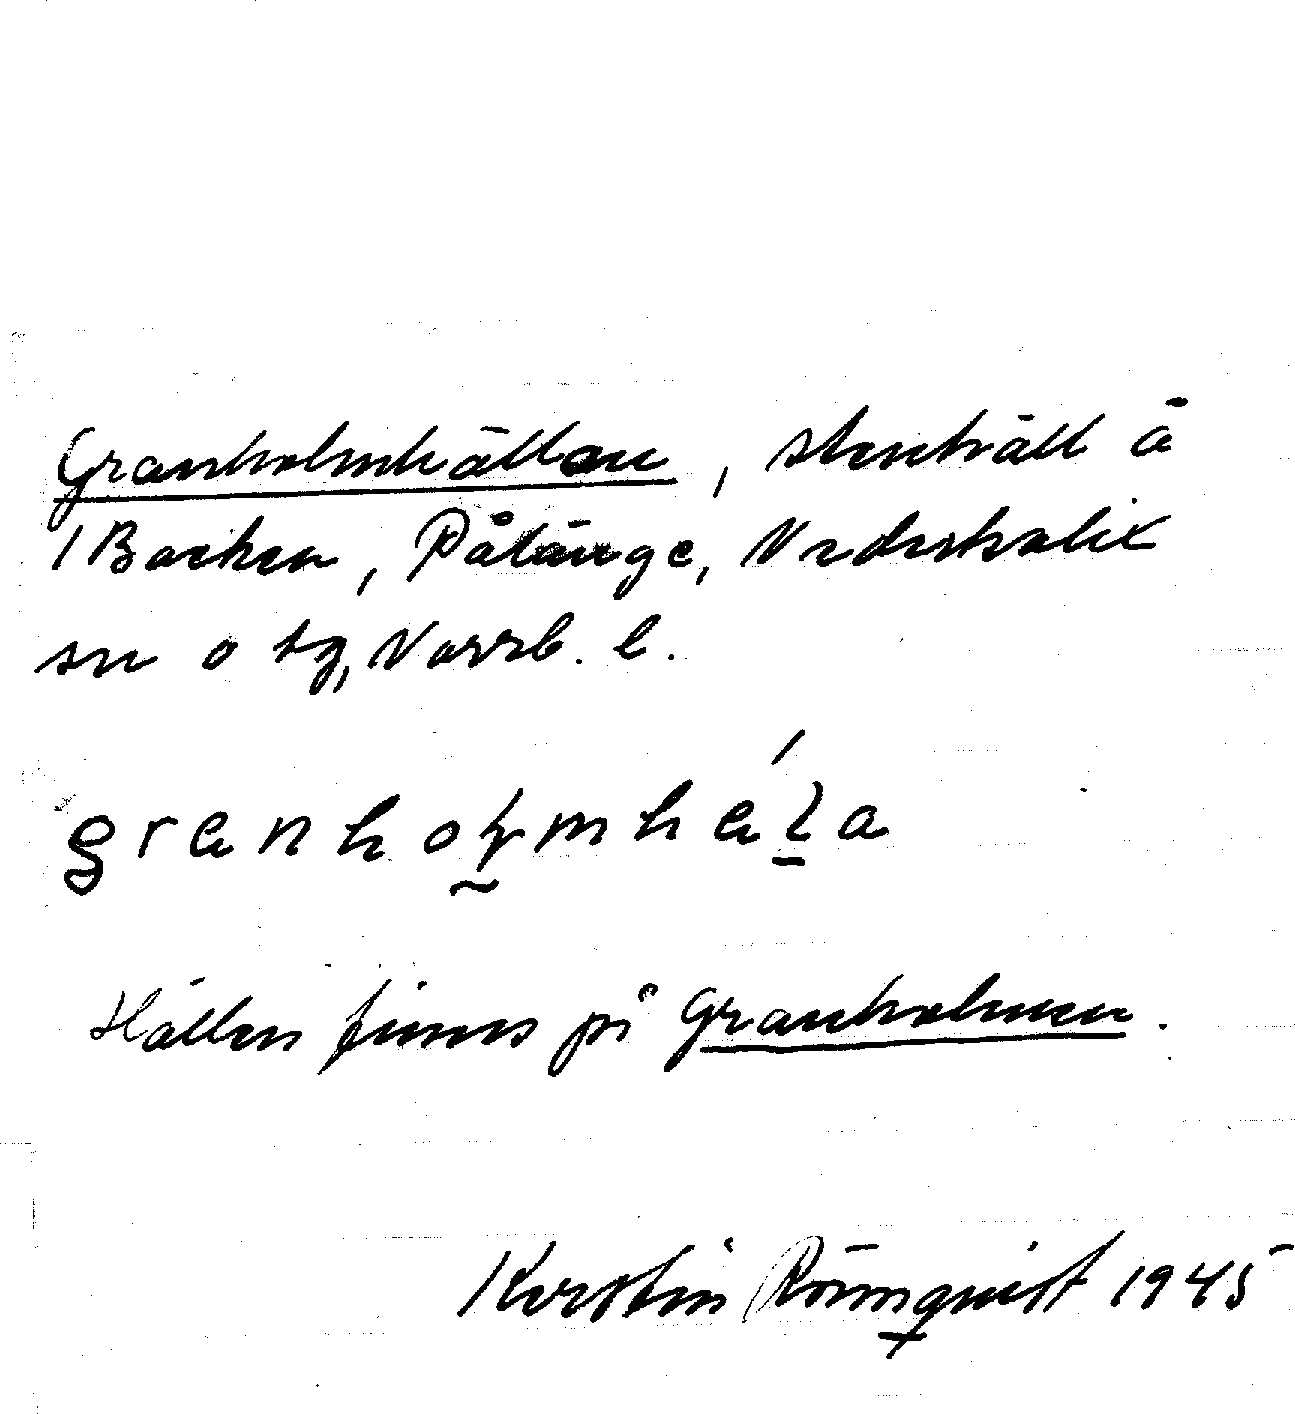 Granholmhällan, stenhäll å
/ Backen, Pålänge, Nederkalix
sn o tg, Norrb. l.
granholmhála
Hällen finns på Granholmen.
Kerstin Rönnquist 1945